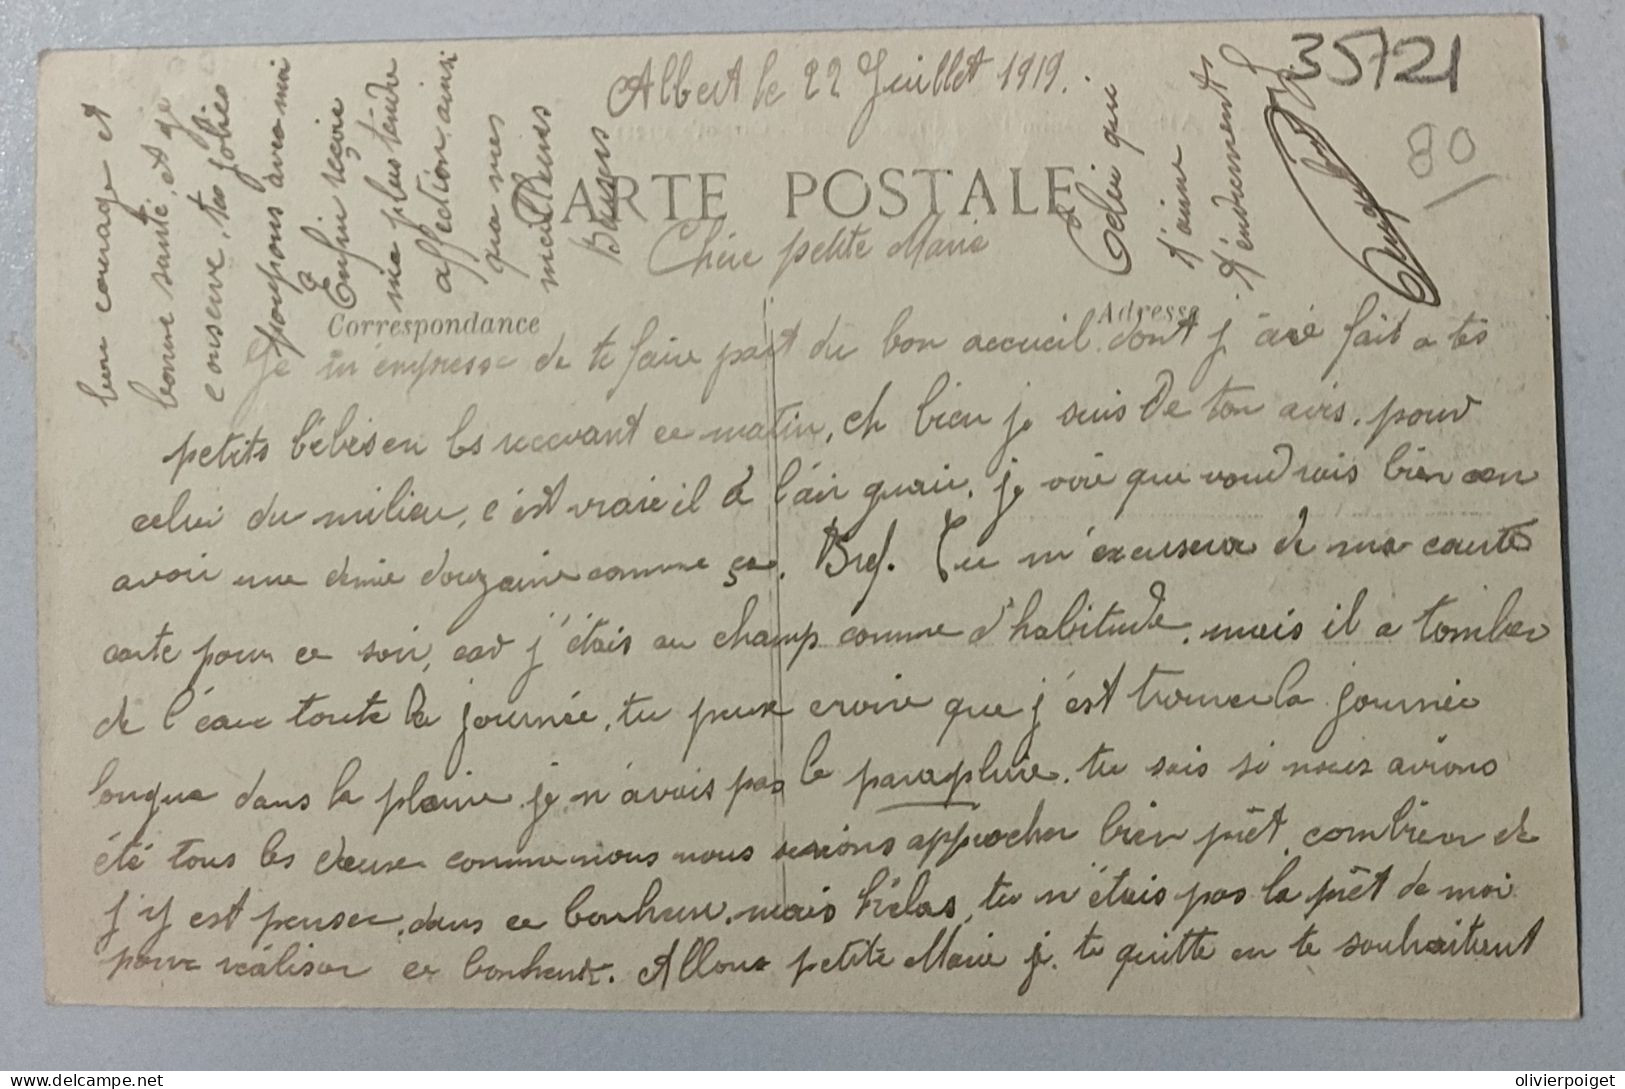 Albert le 22 Juillet 1919.
35721
80
CARTE POSTALE
Chère petite Marie
Correspondance
Adresse
Je m'empresse de te faire part du bon accueil dont j'aie fait a tes
petits bébés en les recevant ce matin, eh bien je suis de ton avis. pour
celui du milieu, c'est vraie il à l'air guaie. je voie que voudrais bien en
avoir une demie douzaine comme ça. Bref. Tu m'excuseura de ma courte
carte pour ce soir, car j'étais au champ comme d'habitude, mais il a tomber
de l'eau toute la journée, tu peux croire que j'est trouver la journée
longue dans la plaine je n'avais pas le parapluie. tu sais si nous avions
été tous les deux comme nous nous serions approcher bien prèt, combien de
j'y est penser, dans ce bonheur. mais hélas, tu n'étais pas la prèt de moi
pour réaliser ce bonheur. Allons petite Marie je te quitte en te souhaitent
bon courage et
bonne santé, et je
conserve, tes jolies
poupons avec moi
Enfin reçoie
ma plus tendre
affection, ainsi
que mes
meilleurs
Baisers
Celui qui
t'aime
tendrement
olivierpoiget